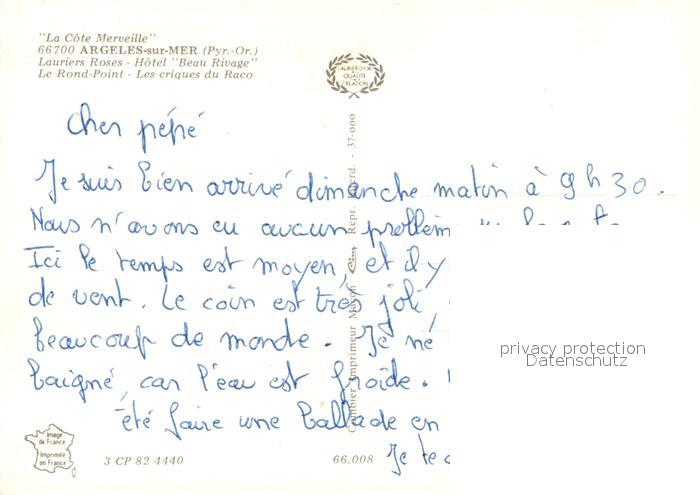 "La Côte Merveille"
66700 ARGELES-sur-MER (Pyr.-Or.)
Lauriers Roses - Hôtel "Beau Rivage"
Le Rond-Point - Les criques du Raco
LAURIER D'OR
DE LA
QUALITÉ
CRÉATION
Cher pépé
Je suis bien arrivé dimanche matin à 9 h 30.
Nous n'avons eu aucun problèm
Ici le temps est moyen, et il y
de vent. Le coin est très joli,
beaucoup de monde. Je né
baigné, car l'eau est froide.
été faire une ballade en
Je te
Combier Imprimeur Macon Cim Repr. Interd. - 37-000
privacy protection
Datenschutz
Image
de France
Imprimée
en France
3 CP 82 4440
66.008